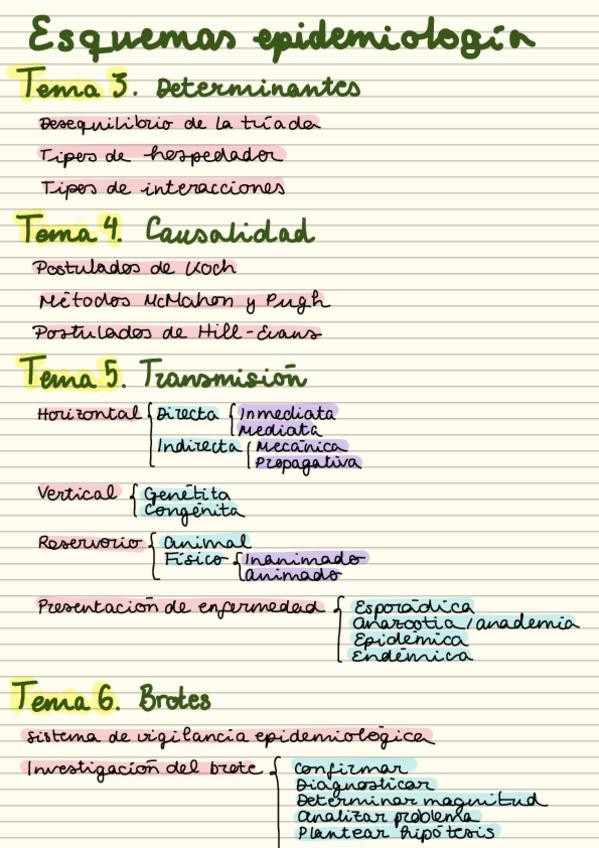 Esquemas epidemiología
Tema 3. Determinantes
Desequilibrio de la tríada
Tipos de hospedador
Tipos de interacciones
Tema 4. Causalidad
Postulados de Koch
Métodos McMahon y Pugh
Postulados de Hill-Evans
Tema 5. Transmisión
Horizontal { Directa { Inmediata
Mediata
Indirecta { Mecánica
Propagativa
Vertical { Genétita
Congénita
Reservorio { Animal
Físico { Inanimado
animado
Presentación de enfermedad { Esporádica
Anazootia/anademia
Epidémica
Endémica
Tema 6. Brotes
Sistema de vigilancia epidemiológica
Investigación del brote { Confirmar
Diagnosticar
Determinar magnitud
Analizar problema
Plantear hipótesis